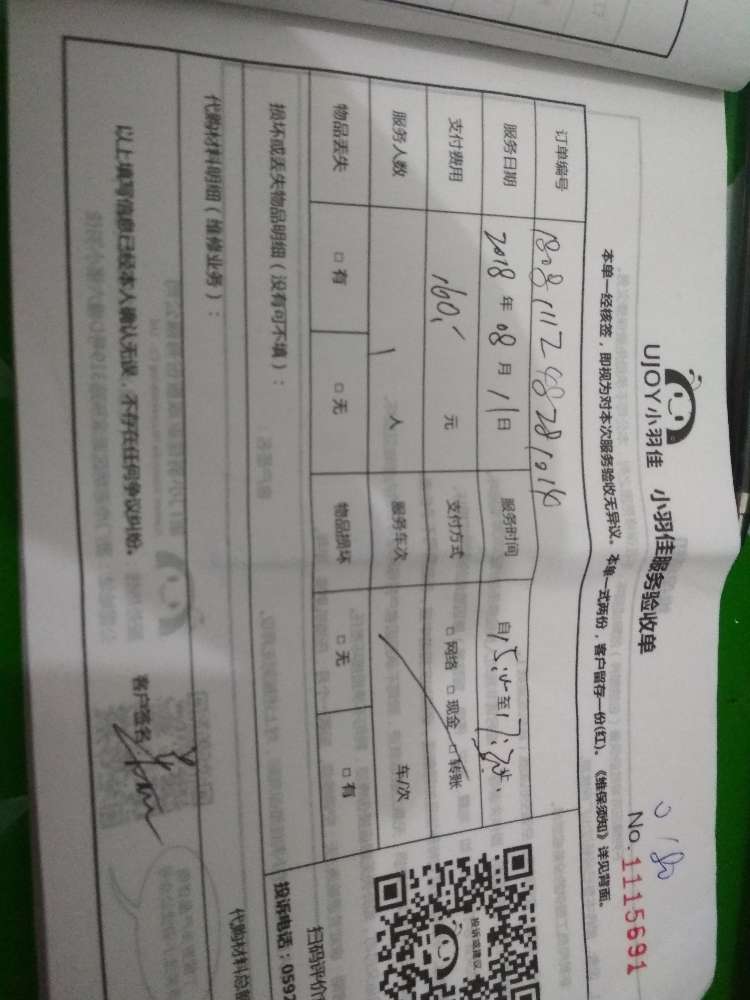 UJOY小羽佳 小羽佳服务验收单
No. 1115691
本单一经核签，即视为对本次服务验收无异议。本单一式两份，客户留存一份(红)。《维保须知》详见背面。
订单编号
服务日期 2018 年 08 月 11 日 服务时间 自 至
支付费用 160 元 支付方式 □ 网络 □ 现金 □ 转账
服务人数 1 人 服务车次 车/次
物品丢失 □ 有 □ 无 物品损坏 □ 无 □ 有
损坏或丢失物品明细（没有可不填）：
代购材料明细（维修业务）：
以上填写信息已经本人确认无误，不存在任何争议纠纷。
客户签名
投诉或建议
扫码评价
投诉电话：0592
代购材料总